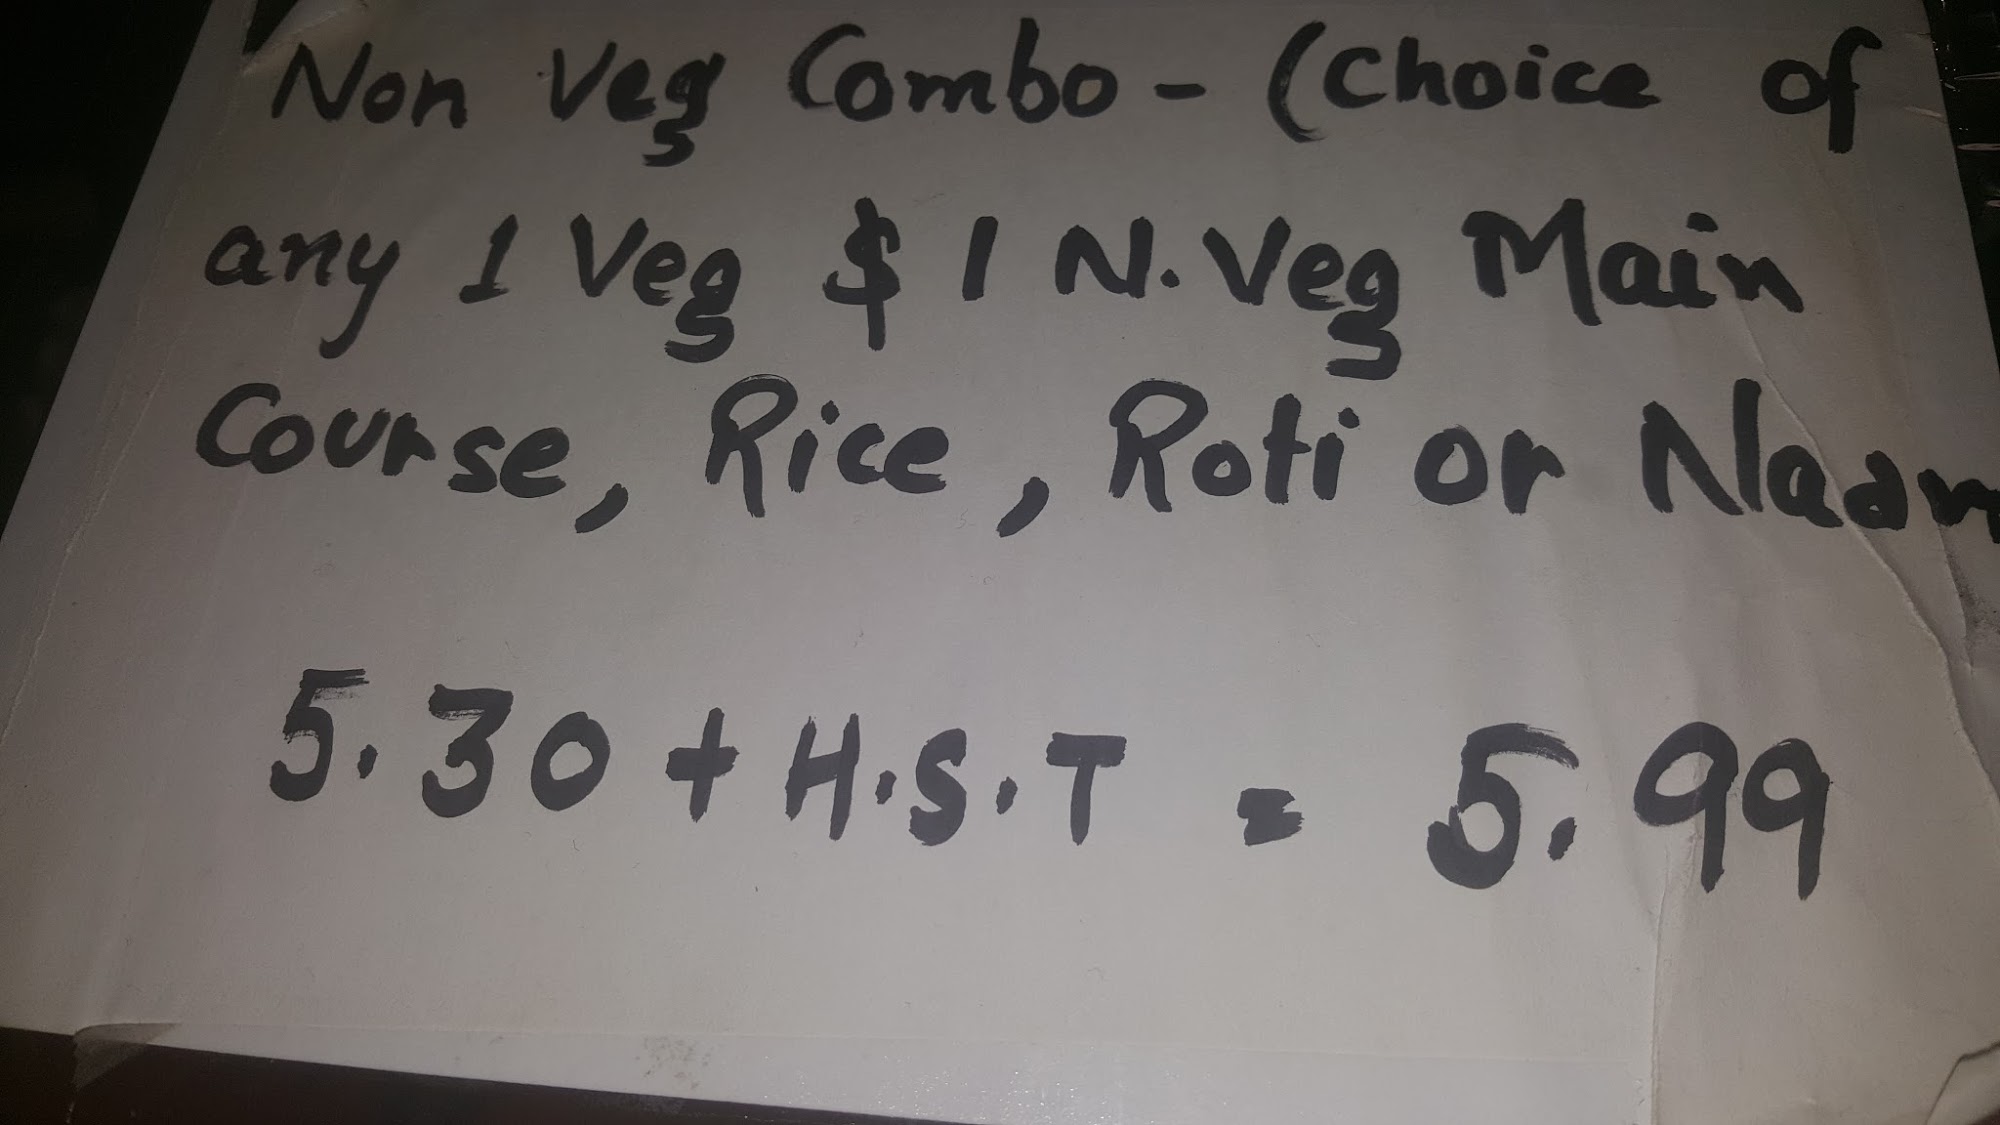 Non Veg Combo - (Choice of
any 1 Veg $ 1 N. Veg Main
Course, Rice, Roti or Naan
5.30 + H.S.T = 5.99